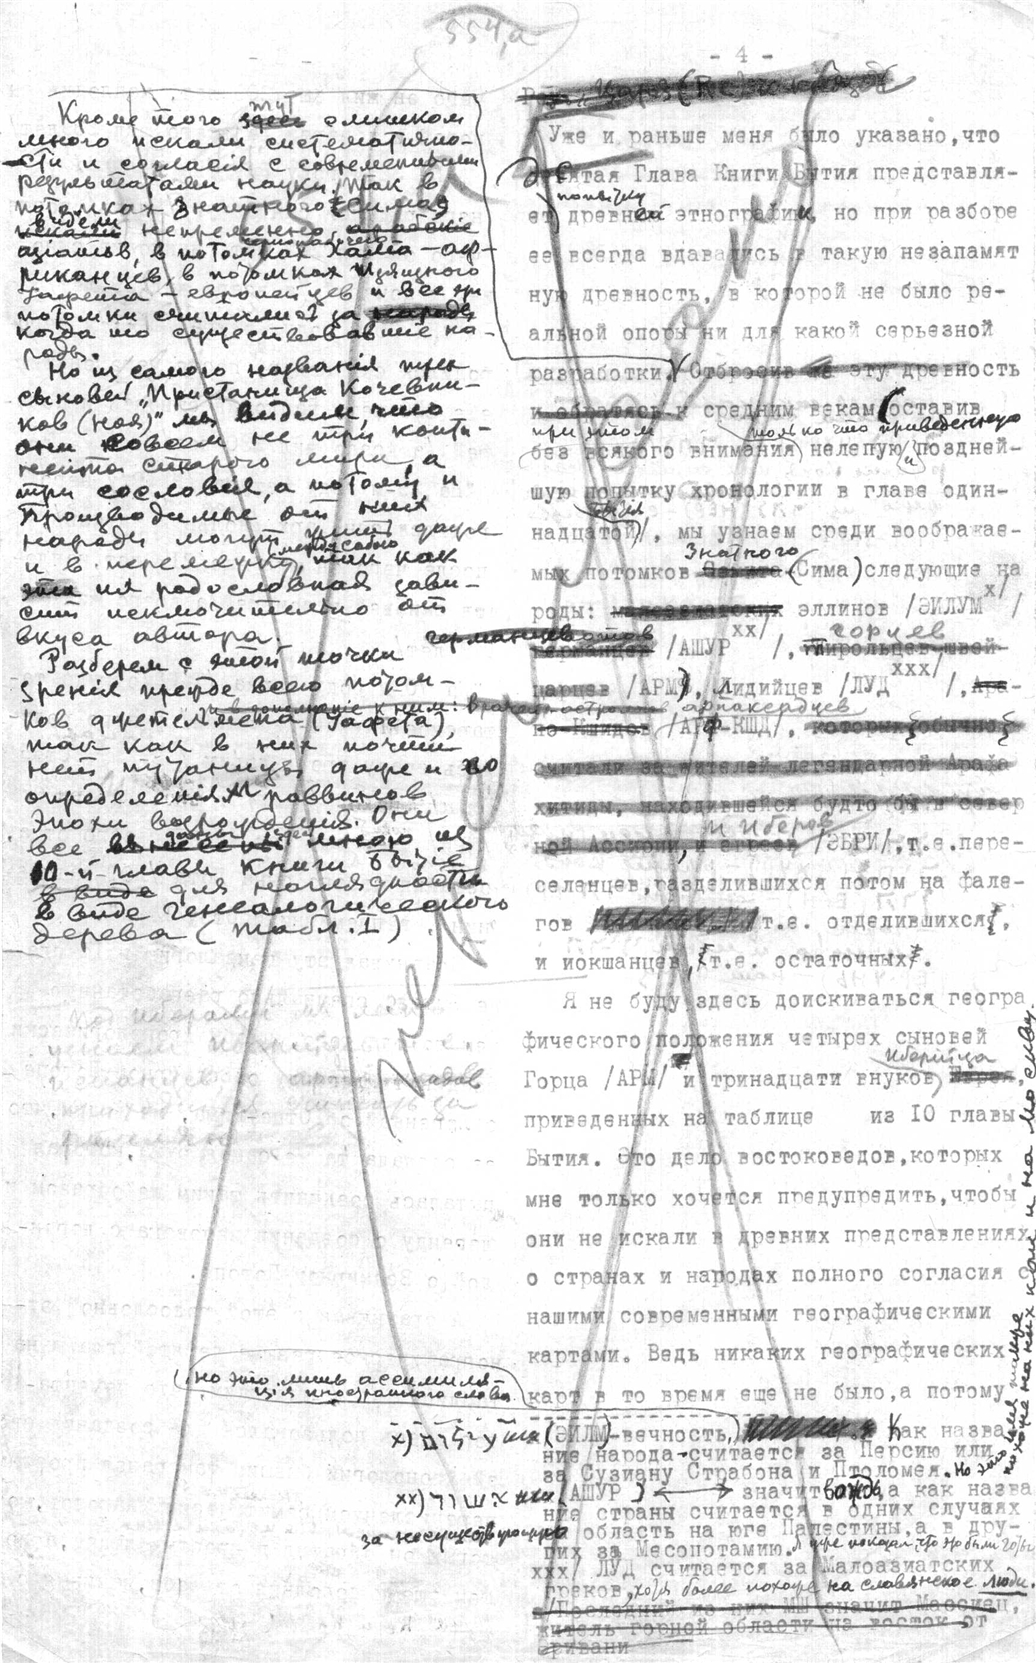 554,а
- 4 -
Кроме того здесь тут слишком
много искали систематично-
сти и согласія с современными
результатами науки. Так в
потомках Знатного (Сима)
искали видели непременно
азіатов, в потомках Хама - аф-
риканцев, в потомках Изящного
Іафета - европейцев и все эти
потомки считались за народы
когда то существовавшие на-
роды.
Но из самого названія трех
сыновей "Пристанища Кочевни-
ков (Ноя)" мы видим, что
они совсем не три конти-
нента старого мира, а
три сословія, а потому и
производимые от них
народы могут даже
и в перемежку между собою, так как
эта их родословная зави-
сит исключительно от
вкуса автора.
Разберем с этой точки
зренія прежде всего потом-
ков (Іафета),
так как в них почти
нет путаницы даже и по
определеніям раввинов
эпохи возрожденія. Они
все даны здесь мною из
10-й главы книги Бытія
в виде для наглядности
в виде генеалогического
дерева (табл. I)
Уже и раньше меня было указано,что
десятая Глава Книги Бытия представля-
ет попытку древней этнографии, но при разборе
ее всегда вдавались в такую незапамят
ную древность, в которой не было ре-
альной опоры ни для какой серьезной
разработки. Отбросив эту древность
и обратясь к средним векам (оставив
при этом только что приведенную
без всякого внимания) нелепую и поздней-
шую попытку хронологии в главе один-
надцатой Бытия/, мы узнаем среди воображае-
мых потомков Знатного (Сима) следующие на
роды: эллинов /ЭИЛУМ х/ /
германцев /АШУР хх/ /, горцев тирольцев-швей-
царцев /АРМ/, Лидийцев /ЛУД ххх/ /, Ара-
по-Кшидов арпаксадцев /АРФ-КШД/, которых обычно
считали за жителей легендарной Арапа
хитиды, находившейся будто бы в север
ной Ассирии, и евреев и Иберов /ЭБРИ/,т.е.пере-
селенцев,разделившихся потом на фале-
гов т.е. отделившихся,
и иокшанцев, т.е. остаточных.
Я не буду здесь доискиваться геогра
фического положения четырех сыновей
Горца /АРМ/ и тринадцати внуков Иберийца Еврея,
приведенных на таблице из 10 главы
Бытия. Это дело востоковедов,которых
мне только хочется предупредить,чтобы
они не искали в древних представлениях
о странах и народах полного согласия с
нашими современными географическими
картами. Ведь никаких географических
карт в то время еще не было,а потому
но это лишь ассимиля-
ція иностранного слова.
х) (ЭИЛМ)-вечность, Как назва
ние народа-считается за Персию или
за Сузиану Страбона и Птоломея. Но это имя также
похоже на них как и на
хх) אשור (АШУР) значит вождь, а как назва
ние страны считается в одних случаях
за несуществующую область на юге Палестины,а в дру-
гих за Месопотамию. Я уже показал что это были
ххх/ ЛУД считается за Малоазиатских
греков, хотя более похоже на славянское люди.
/Последний из них МШ значит Массиец,
житель горной области на восток от
Эривани
Не